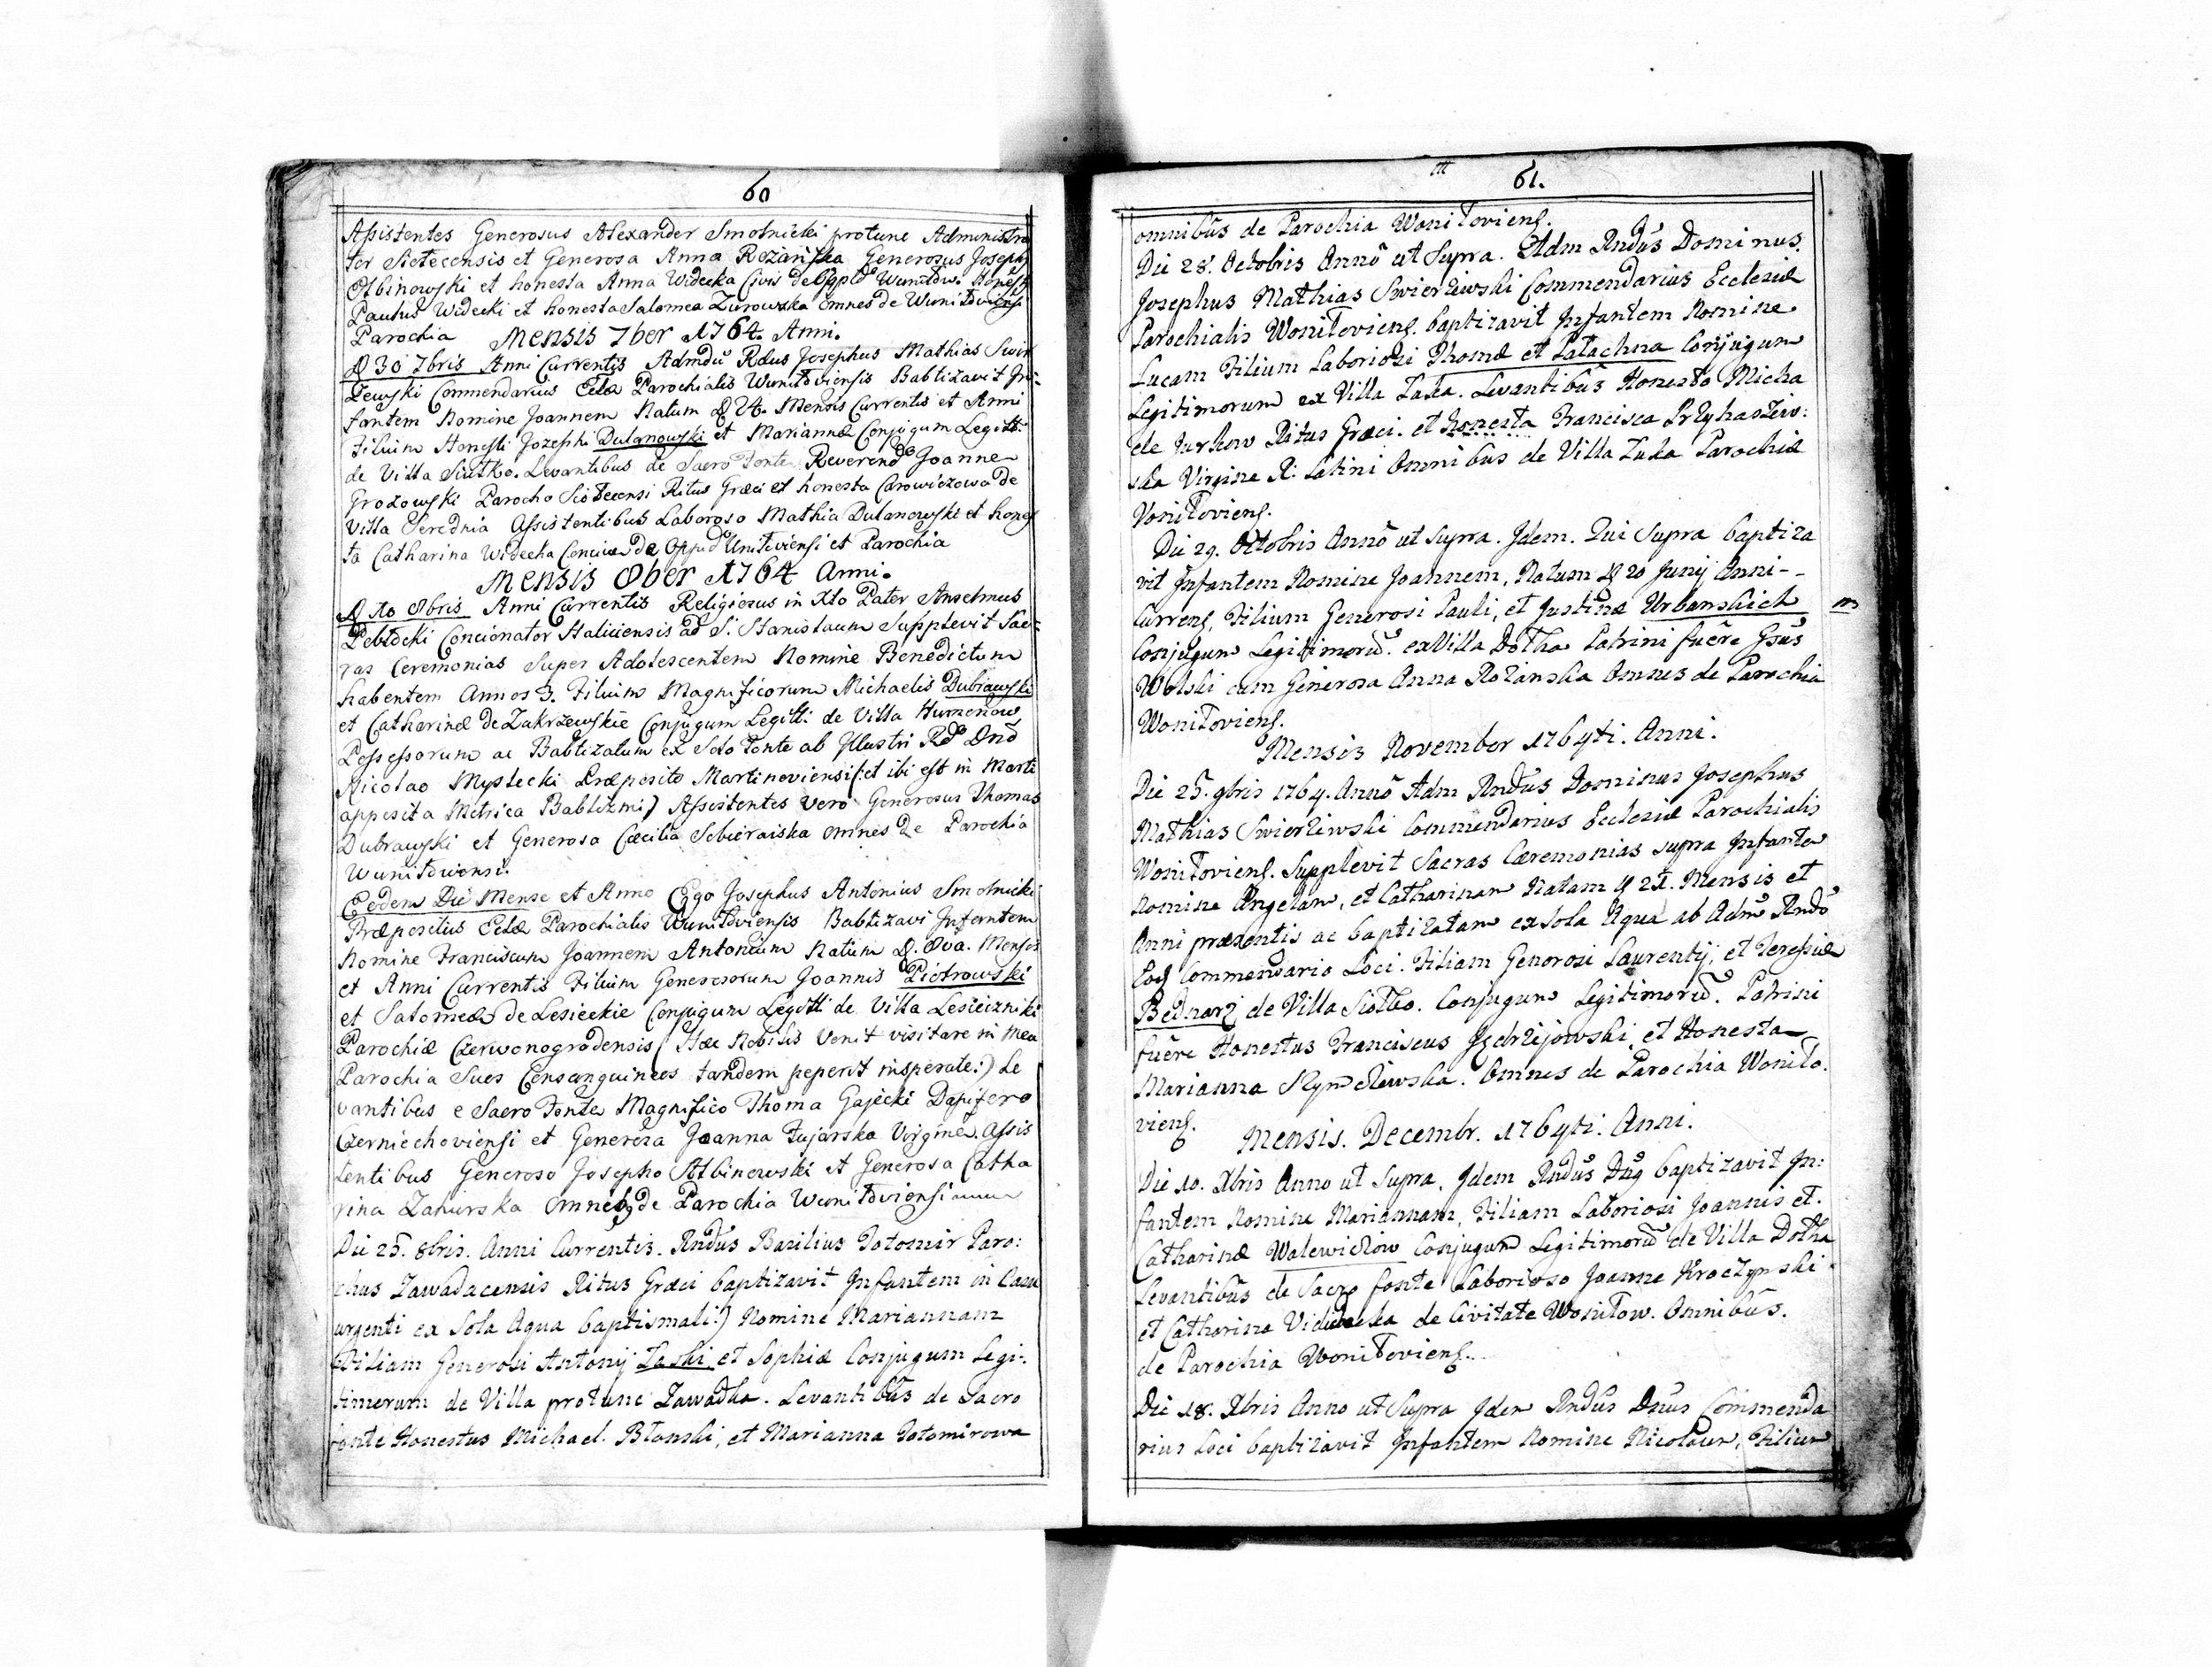 60
Assistentes Generosus Alexander Smolnicki protunc Administra
tor Sietecensis et Generosa Anna Rezańska Generosus Joseph
Albinowski et honesta Anna Widecka Civis de Wunitow. Honest
Paulus Widecki et honesta Salomea Zurowska omnes de Wunitoviensi
Parochia Mensis 7ber 1764. Anni.
D 30 7bris Anni Currentis Admdū Rdus Josephus Mathias Swir
zewski Commendarius Eclæ Parochialis Wunitoviensis Babtizavit In-
fantem Nomine Joannem Natum D 24. Mensis Currentis et Anni
Filium Honesti Jozephi Dulanowski et Mariannæ Conjugum Legitt.
de Villa Siutko. Levantibus de Sacro Fonte Reverendo Joanne
Grozowski Parocho Siotecensi Ritus Græci et honesta Carowiczowa de
Villa Serednia Assistentibus Laboroso Mathia Dulanowski et hones
ta Catharina Widecka Concives de Oppido Unitoviensi et Parochia
Mensis 8ber 1764 Anni.
D 10 8bris Anni Currentis Religiosus in Xto Pater Anselmus
Pebłocki Concionator Haliciensis ad S. Stanislaum Supplevit Sac-
ras Ceremonias Super Adolescentem Nomine Benedictum
habentem Annos 3. Filium Magnificorum Michaelis Dubrawski
et Catharinæ de Zakrzewskie Conjugum Legitti de Villa Humenow
Possessorum ac Babtizatum ex Solo Fonte ab Illustri Rdo Dnō
Nicolao Mysłecki Præposito Martinoviensi (:et ibi est in Marti
apposita Metrica Babtizmi) Assistentes vero Generosus Thomas
Dubrawski et Generosa Cæcilia Sebieraiska omnes de Parochia
Wunitowiensi.
Eodem Die Mense et Anno Ego Josephus Antonius Smolnicki
Præpositus Eclæ Parochialis Wunitoviensis Babtizavi Infantem
Nomine Franciscum Joannem Antonium Natum D. 8va. Mensis
et Anni Currentis Filium Generosorum Joannis Piotrowski
et Salomeæ de Lesieckie Conjugum Legitti de Villa Lesieczniki
Parochiæ Czerwonogrodensis (Hæc Nobilis Venit visitare in mea
Parochia Suos Consanguineos tandem peperit insperate:) Le
vantibus e Sacro Fonte Magnifico Thoma Gajecki Dapifero
Czerniechoviensi et Generosa Joanna Fujarska Virgine. Assis
tentibus Generoso Josepho Albinowski et Generosa Catha
rina Zahurska omnes de Parochia Wunitoviensi
Die 25. 8bris. Anni Currentis. Rndus Basilius Totomir Paro:
chus Zawadacensis Ritus Græci baptizavit Infantem in Casu
urgenti ex Sola Aqua baptismali:) Nomine Mariannam
Filiam Generosi Antonij Łaski et Sophiæ Conjugum Legi:
timorum de Villa protunc Zawadka. Levantibūs de Sacro
fonte Honestus Michael. Błonski, et Marianna Totomirowa
61.
omnibūs de Parochia Wonitoviens.
Die 28. Octobris Annō ut Supra. Adm Rndus Dominus.
Josephus Mathias Swierziwski Commendarius Ecclesiæ
Parochialis Wonitoviens. baptizavit Infantem Nomine
Lucam Filium Laboriosi Thomæ et Pałachna Conjugum
Legitimorum ex Villa Łuka. Levantibūs Honesto Micha
de Turkow Ritus Græci. et honesta Francisca Przyhadziw:
ska Virgine R: Latini Omnibūs de Villa Łuka Parochiæ
Vonitoviens.
Die 29. Octobris Annō ut Supra. Idem. Qui Supra baptiza
vit Infantem Nomine Joannem, Natum D 20 Junij Anni--
Currens, Filium Generosi Pauli, et Justinæ Urbanskich
Conjugum Legitimorū. ex Villa Dołha Patrini fuēre Gsus
Wolski cum Generosa Anna Rożanska Omnes de Parochia
Wonitoviens.
Mensis November 1764ti. Anni.
Die 25. 9bris 1764. Annō Adm Rndus Dominus Josephus
Mathias Swierziwski Commendarius Ecclesiæ Parochialis
Wonitoviens. Supplevit Sacras Cæremonias supra Infante
Nomine Angelam, et Catharinam Natam D 21. Mensis et
Anni præsentis ac baptizatam ex sola Aqua ab Adm Rndō
Eod Commendario Loci. Filiam Generosi Laurentij, et Teressiæ
Bednarz de Villa Siołko. Conjugum Legitimorū. Patrini
fuēre Honestus Franciscus Jędrzijowski, et Honesta
Marianna Szymcziwska. Omnes de Parochia Wonito.
viens.
Mensis. Decembr. 1764ti. Anni.
Die 10. Xbris Anno ut Supra. Idem Rndūs Dnus baptizavit In:
fantem Nomine Mariannam, Filiam Laboriosi Joannis et
Catharinæ Walewiczow Conjugum Legitimorū de Villa Dołha
Levantibūs de Sacro fonte Laborioso Joanne Kroczynski
et Catharina Widecka de Civitate Wonitow. Omnibūs.
de Parochia Wonitoviens.
Die 18. Xbris Anno ut Supra Idem Rndus Dnus Commenda
rius Loci baptizavit Infantem Nomine Nicolaum, Filium